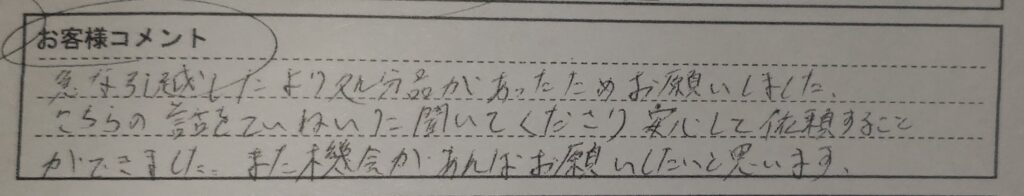 お客様コメント
急な引越したより処分品があったためお願いしました。
こちらの話をていねいに聞いてくださり安心して依頼すること
ができました。また機会があればお願いしたいと思います。